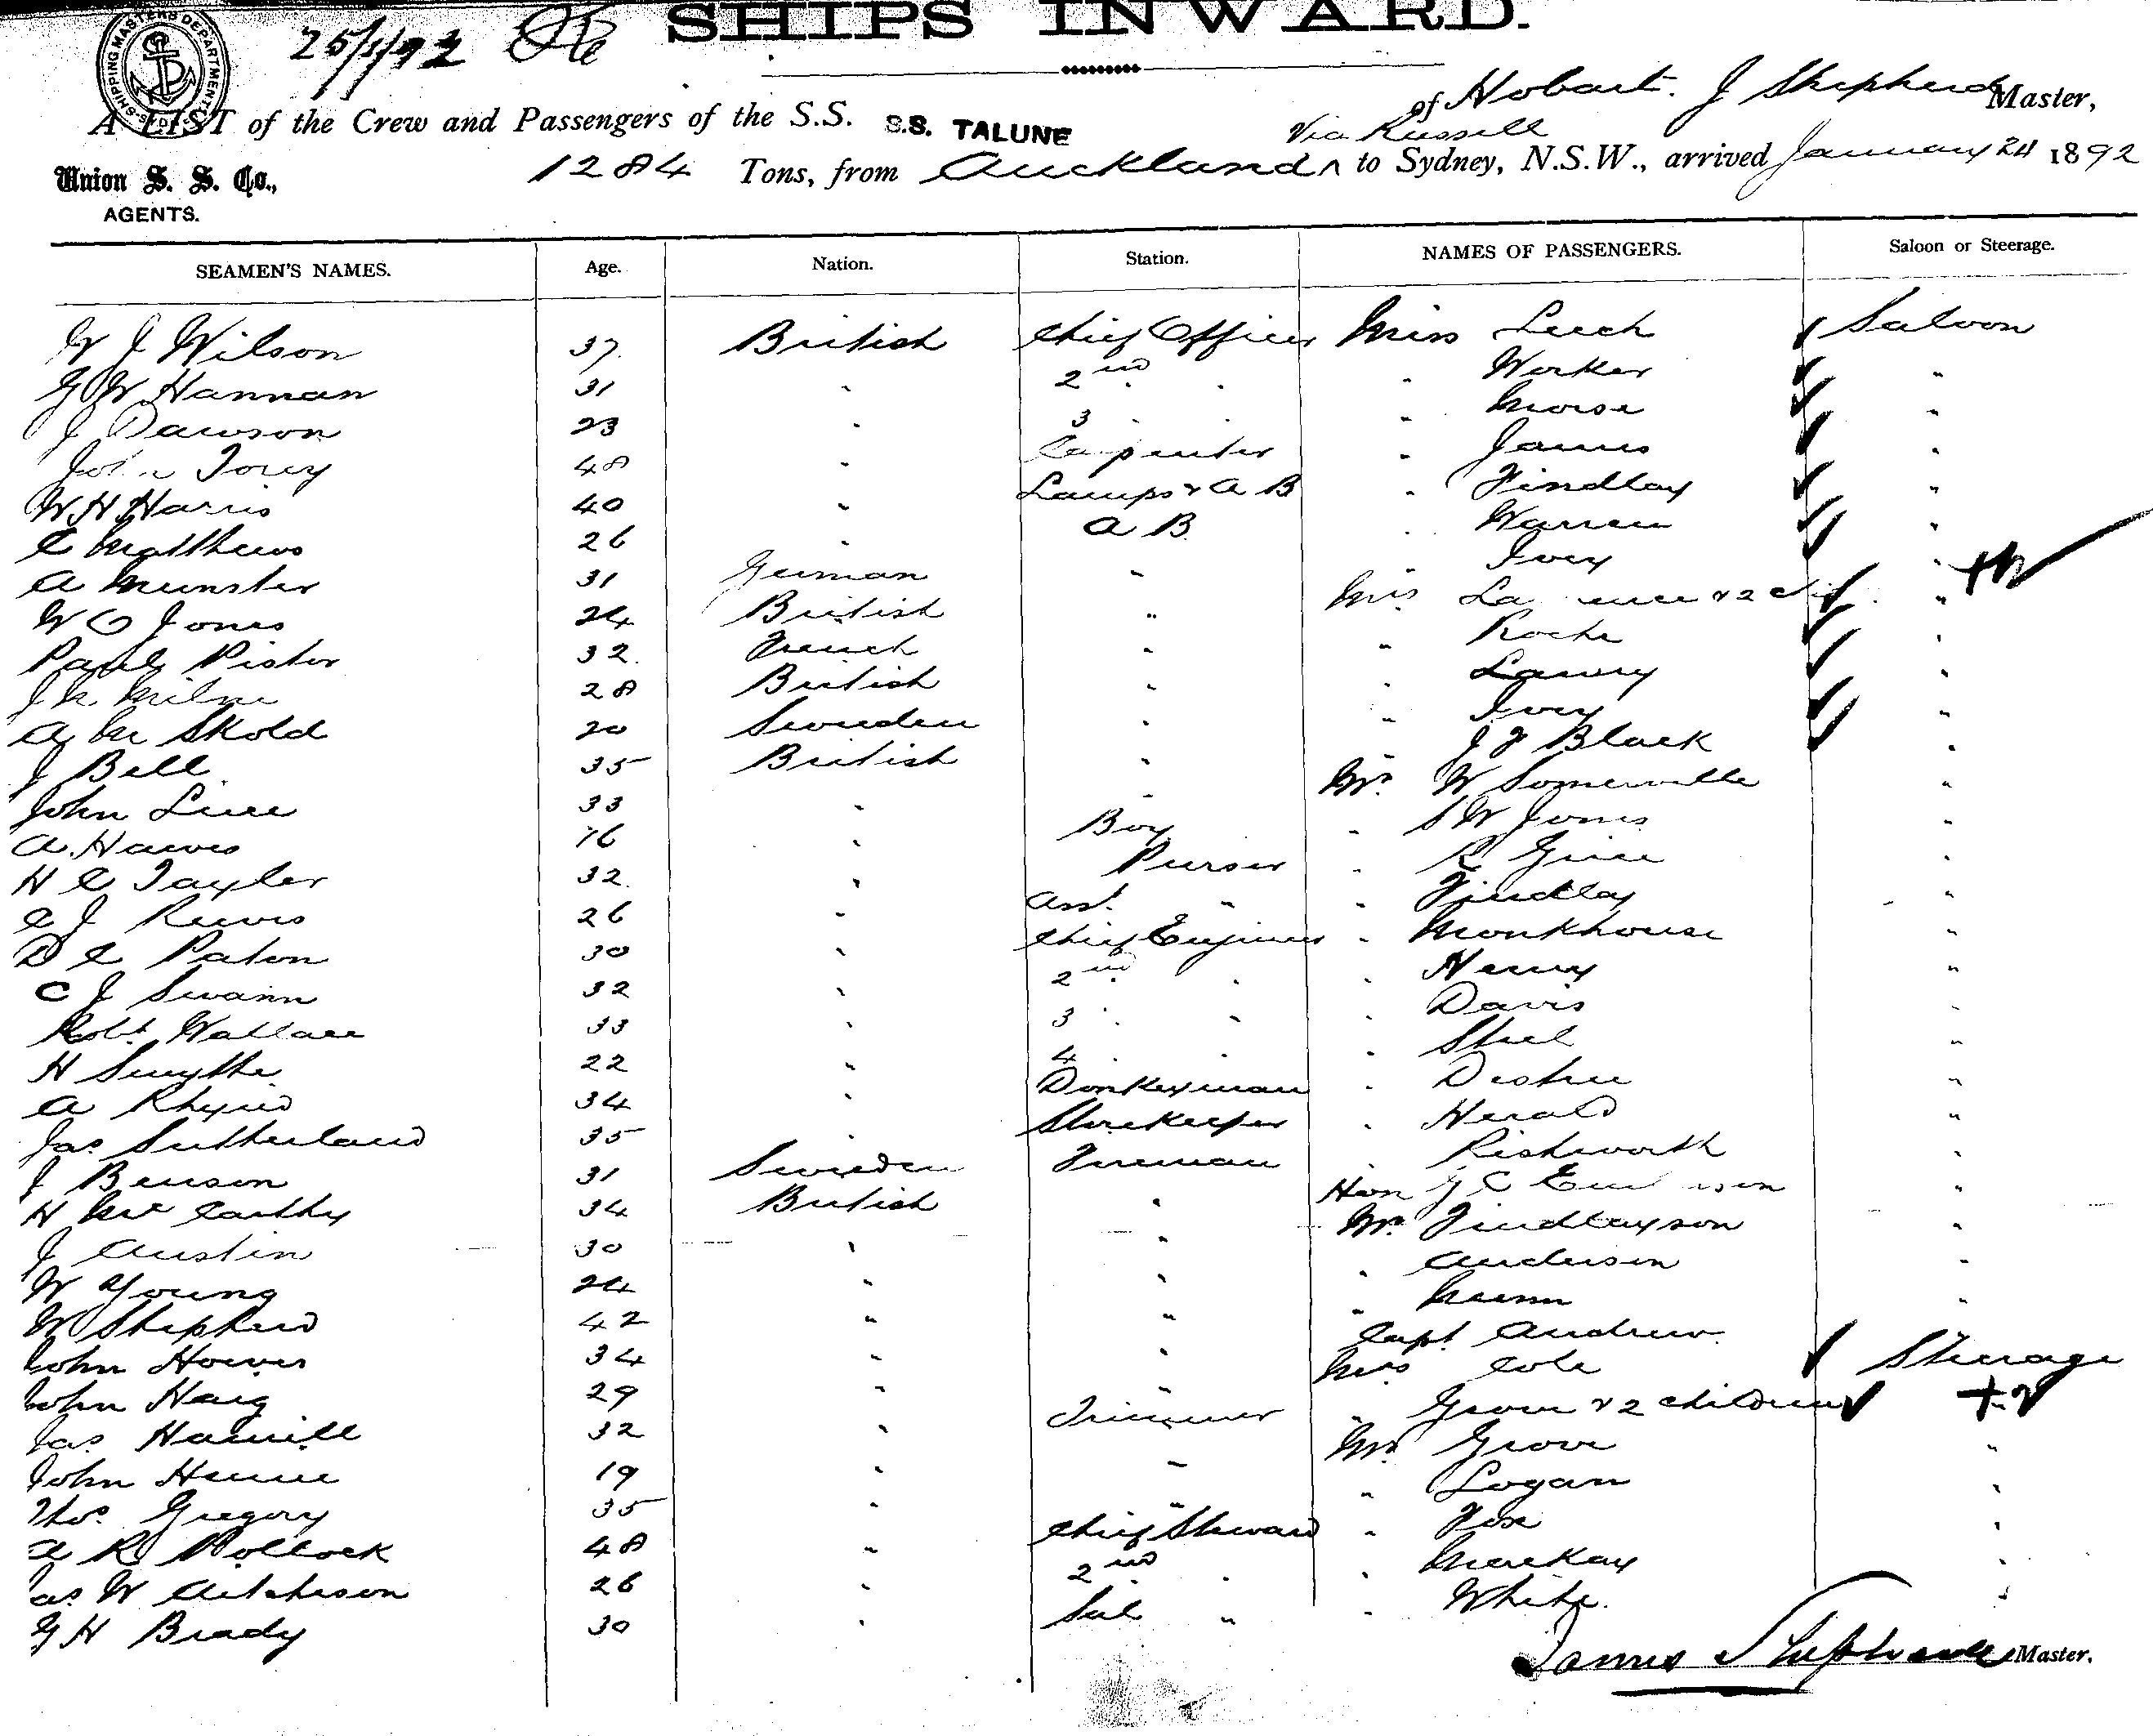 SHIPS INWARD.
SHIPPING MASTERS DEPARTMENT
25/1/92
A LIST of the Crew and Passengers of the S.S. S.S. TALUNE of Hobart. J Shepherd Master,
Via Russell
Union S. S. Co., 1284 Tons, from Auckland ^ to Sydney, N.S.W., arrived January 24 1892
AGENTS.
SEAMEN'S NAMES. Age. Nation. Station. NAMES OF PASSENGERS. Saloon or Steerage.
W J Wilson 37 British Chief Officer Miss Leech Saloon
G W Hannan 31 " 2nd " " Worker "
J Dawson 23 " 3 " " Morse "
John Torey 48 " Carpenter " James "
W H Harris 40 " Lamps & A B " Findlay "
C Matthews 26 " A B " Warren "
A Munster 31 German " " Ivey "
W O Jones 24 British " Mrs & 2 "
Paul Pistor 32 French " " Roche "
J M Milne 28 British " " Lawry "
A M Skold 20 Sweden " " Ivey "
J Bell 35 British " " J F Black "
John Luce 33 " " Mr W Somerville "
A. Hawes 16 " Boy " S W Jones "
H C Tayler 32 " Purser " R "
C J Reeves 26 " Asst. " " Findlay "
D C Paton 30 " Chief Engineer " Monkhouse "
C J Swann 32 " 2nd " " Henry "
Robt Wallace 33 " 3 " " Davis "
H Smythe 22 " 4 " " Steel "
A 34 " Donkeyman "
Jas Sutherland 35 " Storekeeper " Herald "
J Benson 31 Sweden Fireman " Rishworth "
H McCarthy 34 British " Hon "
J Austin 30 " " Mr Findlayson "
W Young 24 " " " Anderson "
W Shepherd 42 " " " Munn "
John Howes 34 " " Capt Andrew
John Haig 29 " " Mrs Cole Steerage
Jas Hamill 32 " Trimmer " Grove & 2 children + 2
John Hume 19 " " Mr Grove "
Thos Gregory 35 " " " Logan "
A R Pollock 48 " Chief Steward " Fox "
Jas W Aitcheson 26 " 2nd " " Mackay "
G H Brady 30 " Sal " " White "
James Shepherd Master.